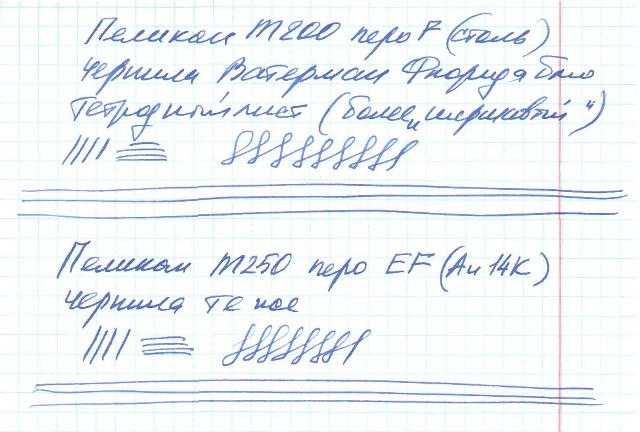 Пеликан M200 перо F (сталь)
чернила Ватерман Флорида блю
тетрадный лист (более „шариковый")
Пеликан M250 перо EF (Au 14K)
чернила те же